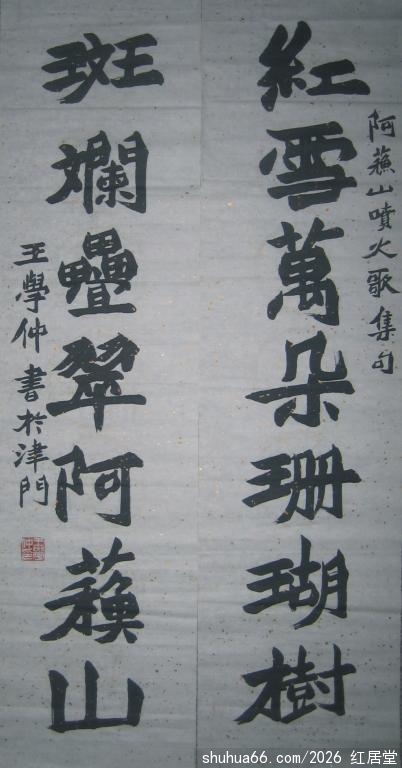 阿蘓山噴火歌集句
紅雪萬朵珊瑚樹
斑斕疊翠阿蘓山
王學仲書於津門
shuhua66.com/2026 红居堂